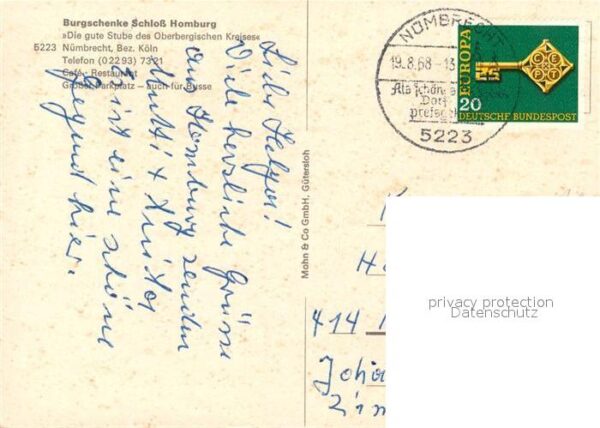 Burgschenke Schloß Homburg
»Die gute Stube des Oberbergischen Kreises«
5223 Nümbrecht, Bez. Köln
Telefon (02293) 7321
Café - Restaurant
Großer Parkplatz – auch für Busse
Liebe Helga!
Viele herzliche Grüsse
aus Homburg senden
Mutti + Anita
Es ist eine schöne
Gegend hier.
Mohn & Co GmbH, Gütersloh
NÜMBRECHT
19.8.68-13
Als schönes
Dorf
preisge
5223
EUROPA
CEPT
20
DEUTSCHE BUNDESPOST
414
Joha
Zim
privacy protection
Datenschutz